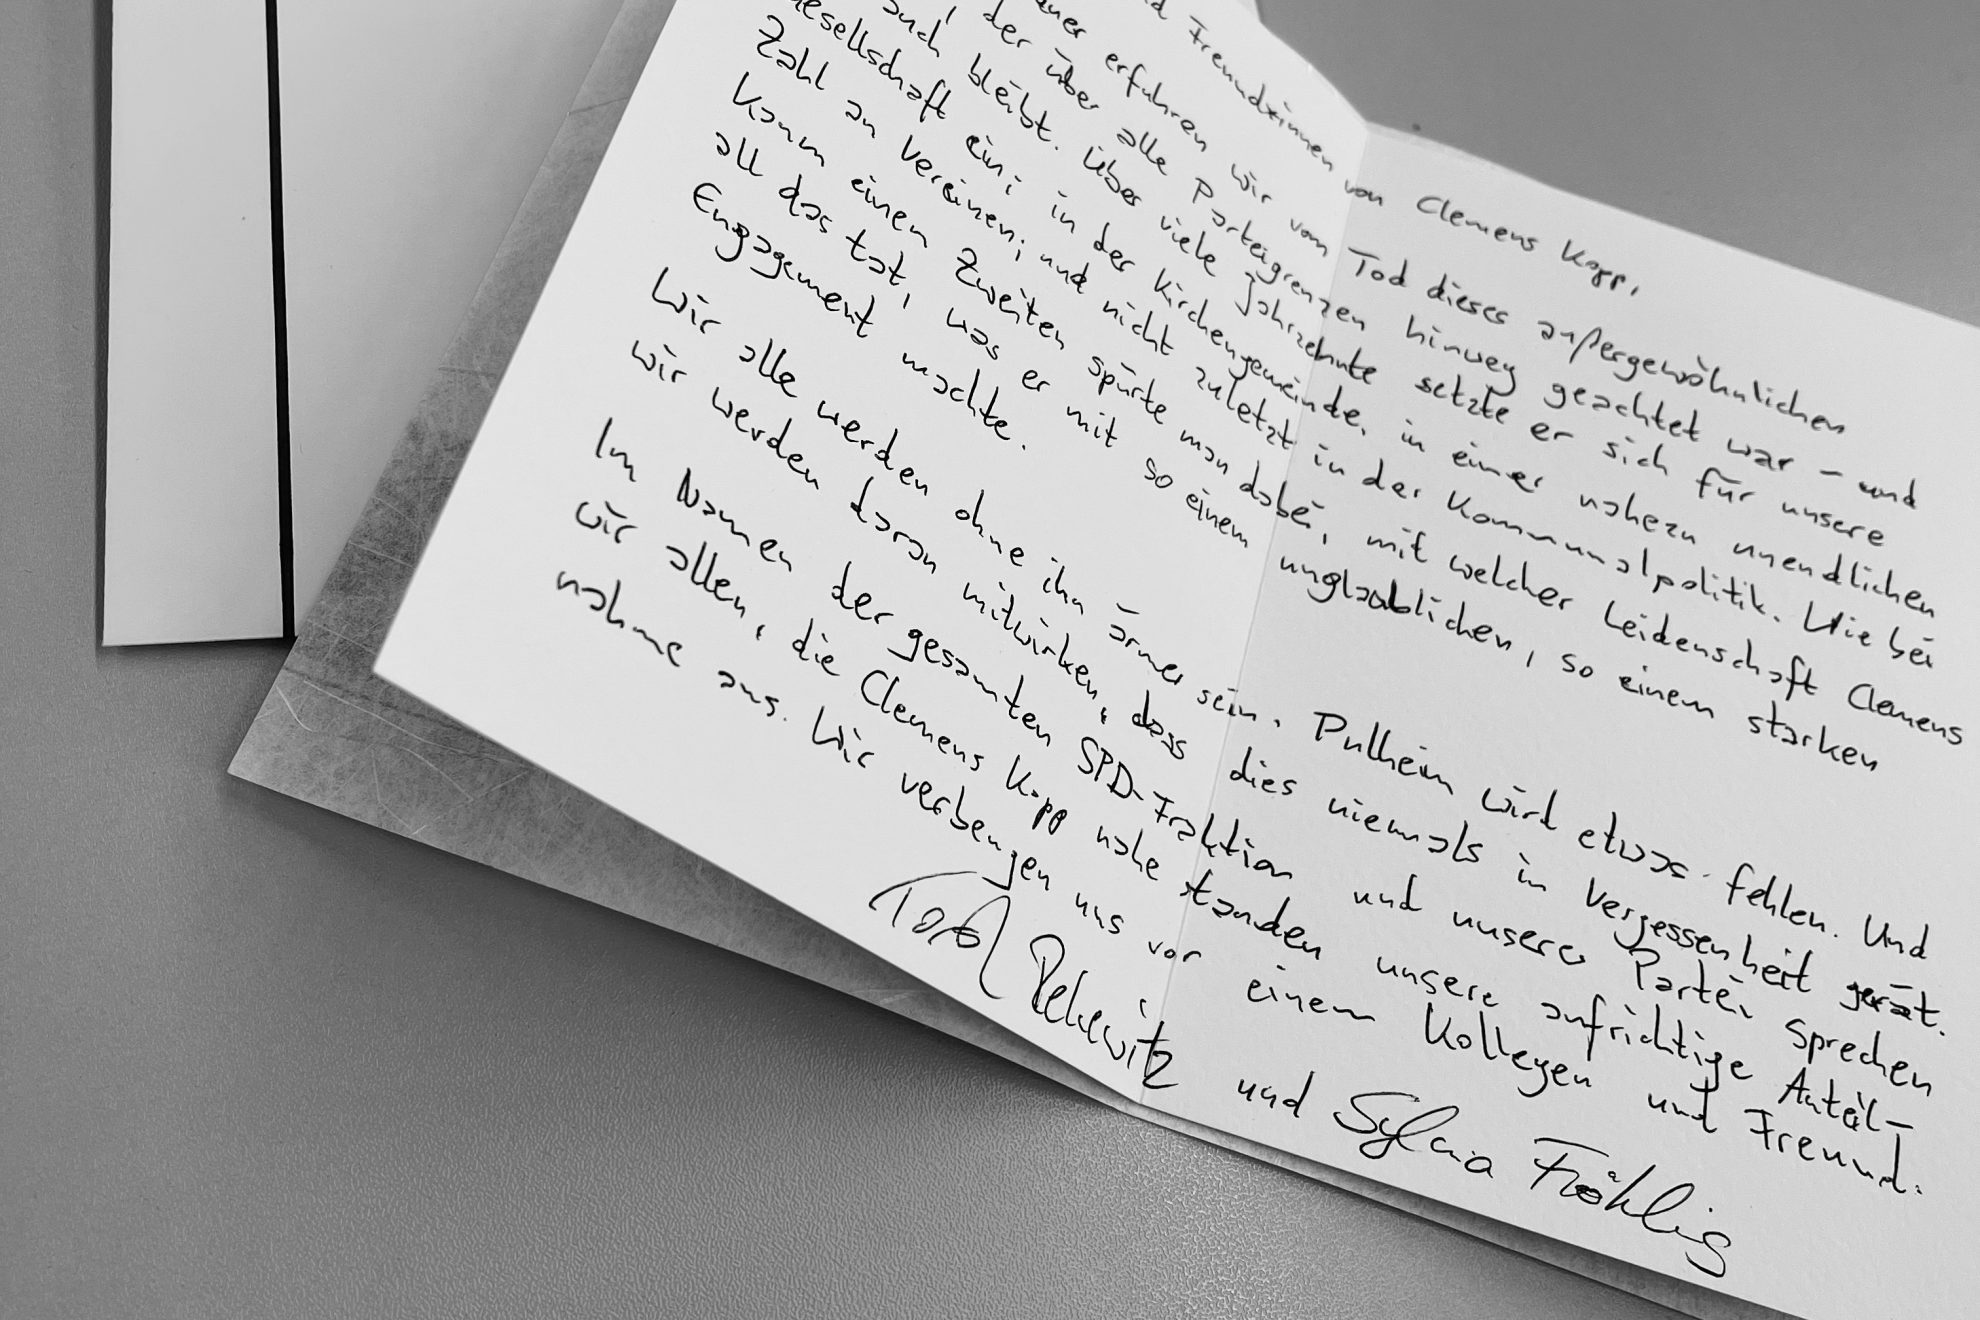 Freund*innen von Clemens Kopp,
erfuhren wir vom Tod dieses außergewöhnlichen
, der über alle Parteigrenzen hinweg geachtet war – und
auch bleibt. Über viele Jahrzehnte setzte er sich für unsere
Gesellschaft ein; in der Kirchengemeinde, in einer nahezu unendlichen
Zahl an Vereinen; und nicht zuletzt in der Kommunalpolitik. Wie bei
kaum einen Zweiten spürte man dabei, mit welcher Leidenschaft Clemens
all das tat, was er mit so einem unglaublichen, so einem starken
Engagement machte.
Wir alle werden ohne ihn ärmer sein. Pulheim wird etwas fehlen. Und
wir werden daran mitwirken, dass dies niemals in Vergessenheit gerät.
Im Namen der gesamten SPD-Fraktion und unserer Partei sprechen
wir allen, die Clemens Kopp nahe standen unsere aufrichtige Anteil-
nahme aus. Wir verbeugen uns vor einem Kollegen und Freund.
Torsten Rekewitz und Sylvia Fröhling